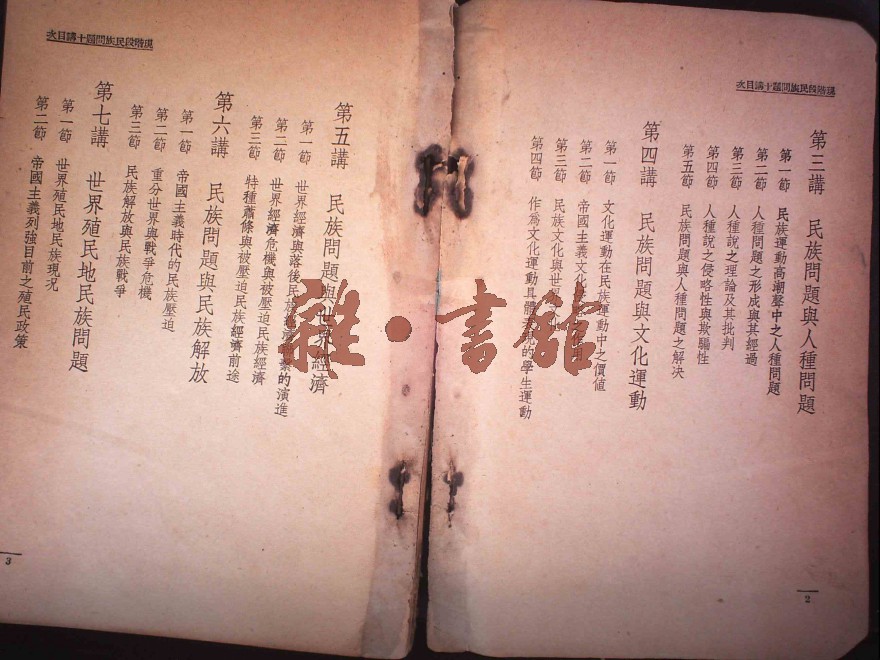 現階段民族問題十講目次
第三講 民族問題與人種問題
第一節 民族運動高潮聲中之人種問題
第二節 人種問題之形成與其經過
第三節 人種說之理論及其批判
第四節 人種說之侵略性與欺騙性
第五節 民族問題與人種問題之解决
第四講 民族問題與文化運動
第一節 文化運動在民族運動中之價値
第二節 帝國主義文化作用
第三節 民族文化與世界文化
第四節 作爲文化運動具體的學生運動
2
現階段民族問題十講目次
第五講 民族問題與世界經濟
第一節 世界經濟與落後民族經濟
第二節 世界經濟危機與被壓迫民族經濟的演進
第三節 特種蕭條與被壓迫民族經濟前途
第六講 民族問題與民族解放
第一節 帝國主義時代的民族壓迫
第二節 重分世界與戰爭危機
第三節 民族解放與民族戰爭
第七講 世界殖民地民族問題
第一節 世界殖民地民族現况
第二節 帝國主義列強目前之殖民政策
3
雜·書館